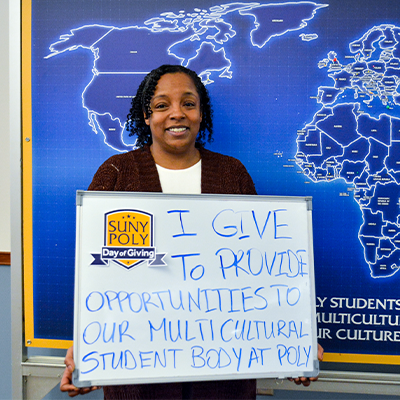 SUNY
POLY
Day of Giving
I GIVE
TO PROVIDE
OPPORTUNITIES TO
OUR MULTICULTURAL
STUDENT BODY AT POLY
STUDENTS
MULTICULTU
UR CULTURE